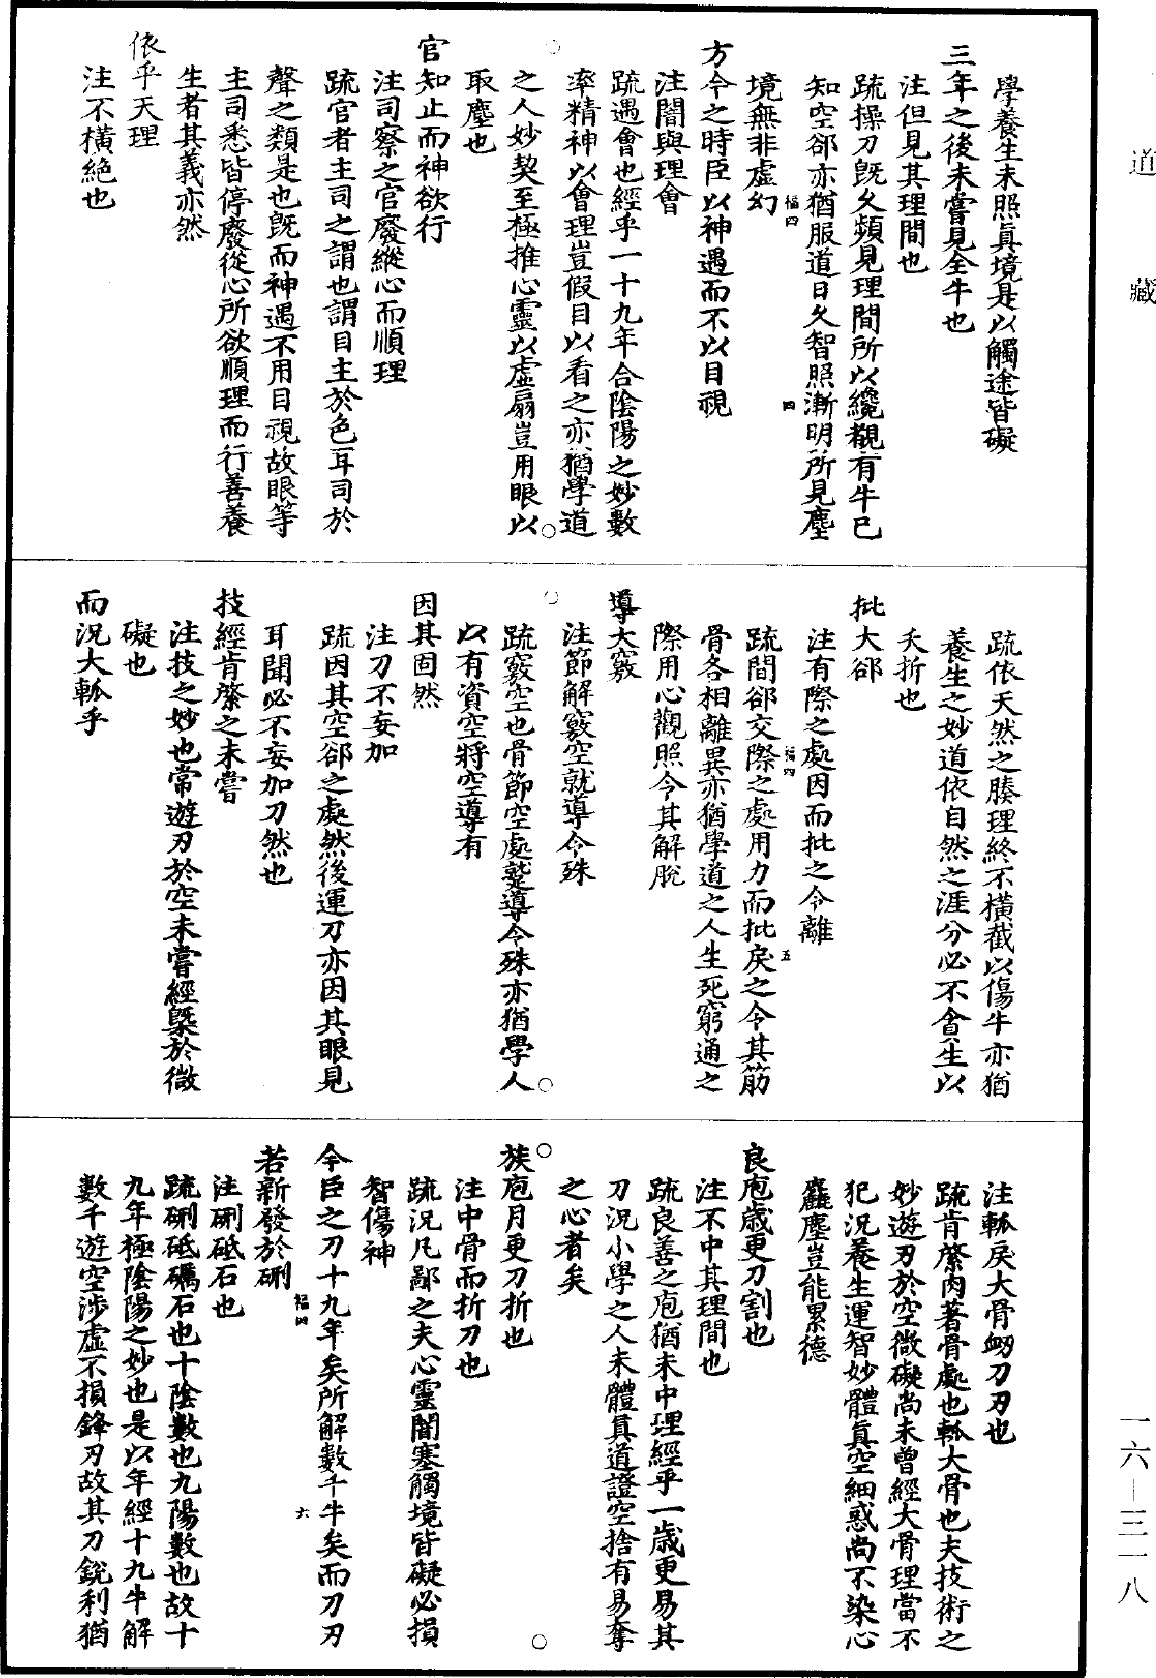 道藏
學養生未照真境是以觸途皆礙
三年之後未嘗見全牛也
注但見其理間也
疏操刀既久頻見理間所以纔覩有牛已
知空郤亦猶服道日久智照漸明所見塵
境無非虛幻
福四
四
方今之時臣以神遇而不以目視
注闇與理會
疏遇會也經乎一十九年合陰陽之妙數
率精神以會理豈假目以看之亦猶學道
之人妙契至極推心靈以虛扇豈用眼以
取塵也
官知止而神欲行
注司察之官廢縱心而順理
疏官者主司之謂也謂目主於色耳司於
聲之類是也既而神遇不用目視故眼等
主司悉皆停廢從心所欲順理而行善養
生者其義亦然
依乎天理
注不橫絕也
疏依天然之腠理終不橫截以傷牛亦猶
養生之妙道依自然之涯分必不貪生以
夭折也
批大郤
注有際之處因而批之令離
福四
五
疏間郤交際之處用力而批戾之令其筋
骨各相離異亦猶學道之人生死窮通之
際用心觀照令其解脫
導大窾
注節解窾空就導令殊
疏窾空也骨節空處蹵導令殊亦猶學人
以有資空將空導有
因其固然
注刀不妄加
疏因其空郤之處然後運刀亦因其眼見
耳聞必不妄加刀然也
技經肯綮之未嘗
注技之妙也常遊刃於空未嘗經槩於微
礙也
而況大軱乎
注軱戾大骨衂刀刃也
疏肯綮肉著骨處也軱大骨也夫技術之
妙遊刃於空微礙尚未曾經大骨理當不
犯況養生運智妙體真空細惑尚不染心
麤塵豈能累德
良庖歲更刀割也
注不中其理間也
疏良善之庖猶未中理經乎一歲更易其
刀況小學之人未體真道證空捨有易奪
之心者矣
族庖月更刀折也
注中骨而折刀也
疏況凡鄙之夫心靈闇塞觸境皆礙必損
智傷神
今臣之刀十九年矣所解數千牛矣而刀刃
福四
六
若新發於硎
注硎砥石也
疏硎砥礪石也十陰數也九陽數也故十
九年極陰陽之妙也是以年經十九牛解
數千遊空涉虛不損鋒刃故其刀銳利猶
一六—三一八